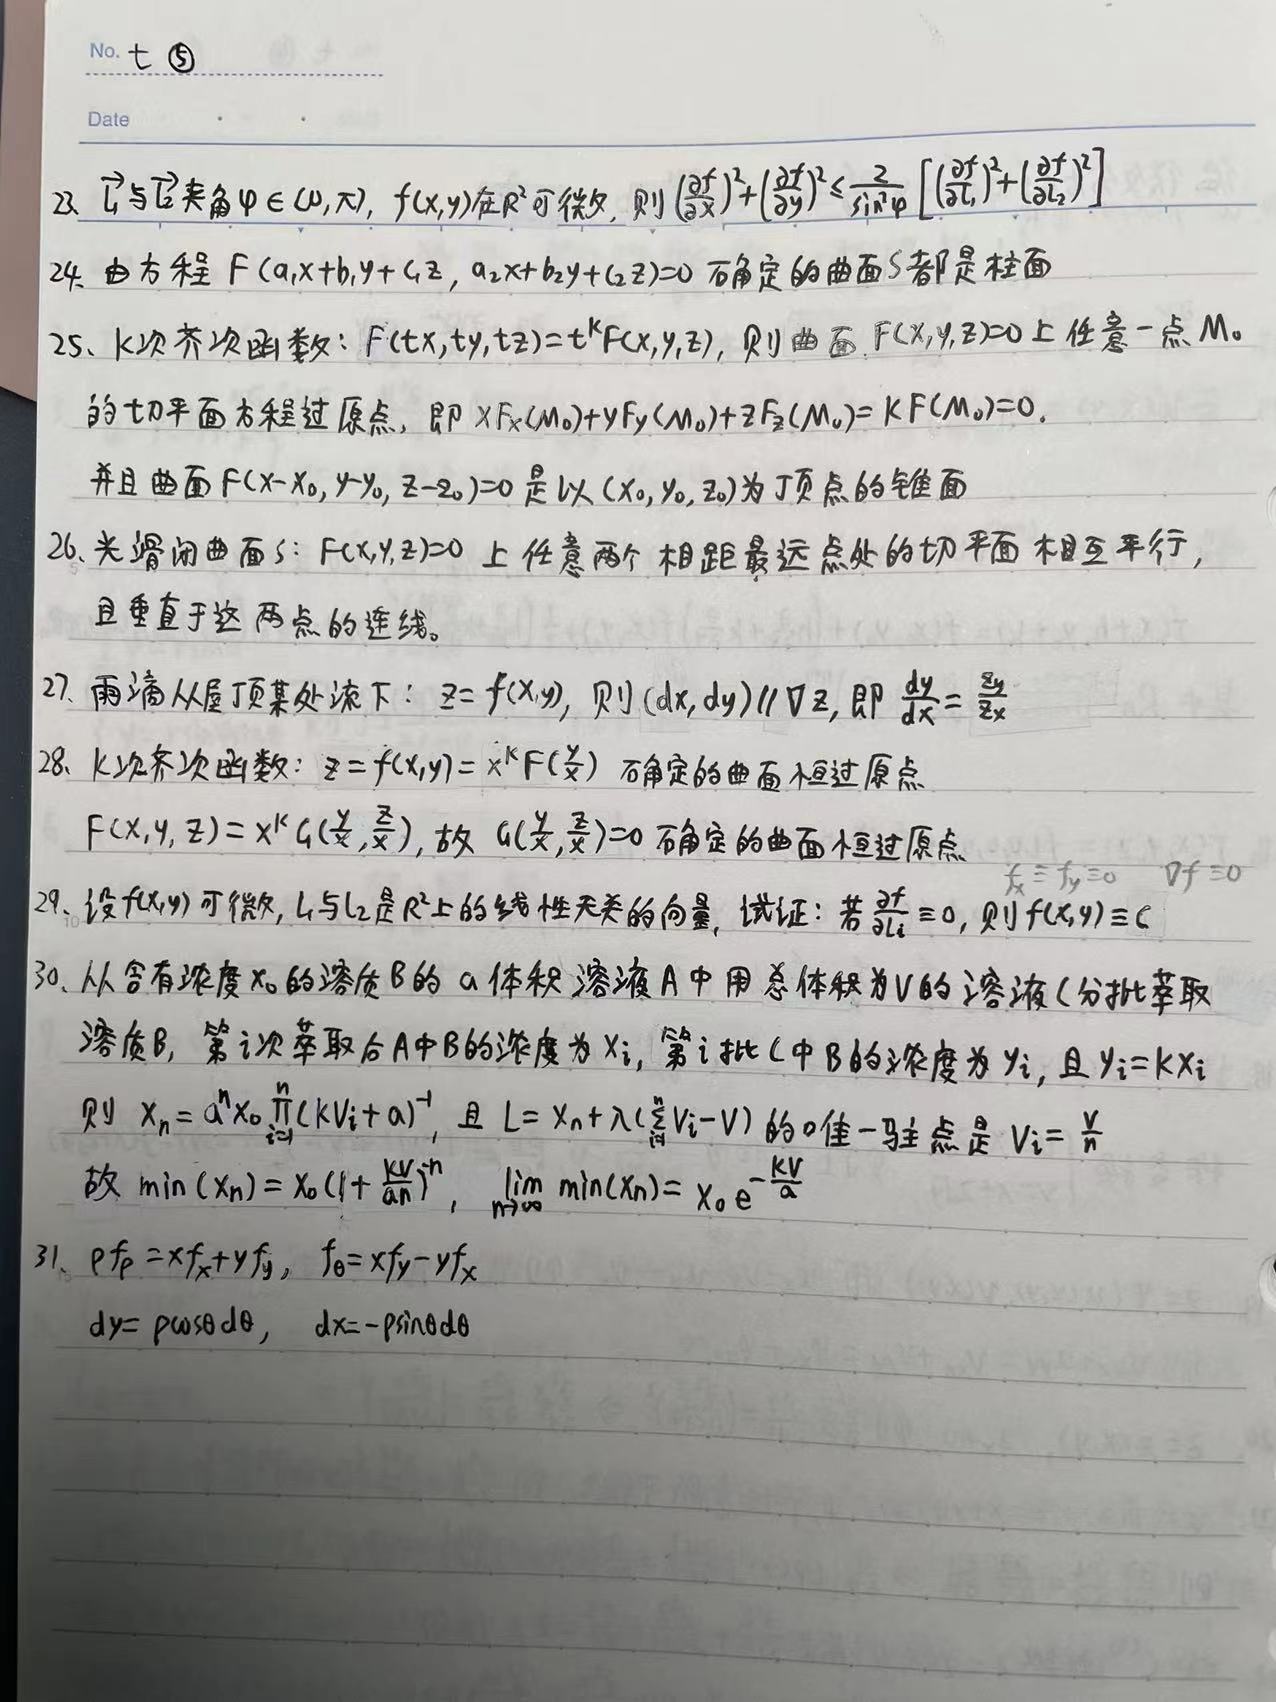 No. 七 ⑤
Date
23. $\vec{l_1}$与$\vec{l_2}$夹角φ∈(0,π), f(x,y)在R²可微, 则 $(\frac{∂f}{∂x})^2+(\frac{∂f}{∂y})^2≤\frac{2}{sin^2φ}[(\frac{∂f}{∂l_1})^2+(\frac{∂f}{∂l_2})^2]$
24. 由方程 F(a₁x+b₁y+c₁z, a₂x+b₂y+c₂z)=0 确定的曲面S都是柱面
25、K次齐次函数: F(tx,ty,tz)=t^K F(x,y,z), 则曲面 F(x,y,z)=0 上任意一点 M₀
的切平面方程过原点, 即 xFx(M₀)+yFy(M₀)+zFz(M₀)=KF(M₀)=0.
并且曲面F(x-x₀, y-y₀, z-z₀)=0是以(x₀,y₀,z₀)为顶点的锥面
26、光滑闭曲面S: F(x,y,z)=0 上任意两个相距最远点处的切平面相互平行,
且垂直于这两点的连线。
27、雨滴从屋顶某处流下: z=f(x,y), 则(dx,dy)∥∇z, 即 $\frac{dy}{dx}=\frac{z_y}{z_x}$
28、K次齐次函数: z=f(x,y)=x^K F($\frac{y}{x}$) 确定的曲面恒过原点
F(x,y,z)=x^K G($\frac{y}{x},\frac{z}{x}$), 故 G($\frac{y}{x},\frac{z}{x}$)=0 确定的曲面恒过原点
fx≡fy≡0 ∇f≡0
29、设f(x,y)可微, l₁与l₂是R²上的线性无关的向量, 试证: 若$\frac{∂f}{∂l_i}$≡0, 则f(x,y)≡C
30、从含有浓度x₀的溶质B的a体积溶液A中用总体积为V的溶液C分批萃取
溶质B, 第i次萃取后A中B的浓度为xi, 第i批C中B的浓度为yi, 且yi=Kxi
则 $x_n=a^n x_0\prod_{i=1}^{n}(kV_i+a)^{-1}$, 且 $L=x_n+λ(\sum_{i=1}^{n}V_i-V)$ 的唯一驻点是 $V_i=\frac{V}{n}$
故 $min(x_n)=x_0(1+\frac{kV}{an})^{-n}$, $\lim_{n→∞} min(x_n)=x_0e^{-\frac{kV}{a}}$
31、ρfρ=xfx+yfy, fθ=xfy-yfx
dy=ρcosθdθ, dx=-ρsinθdθ